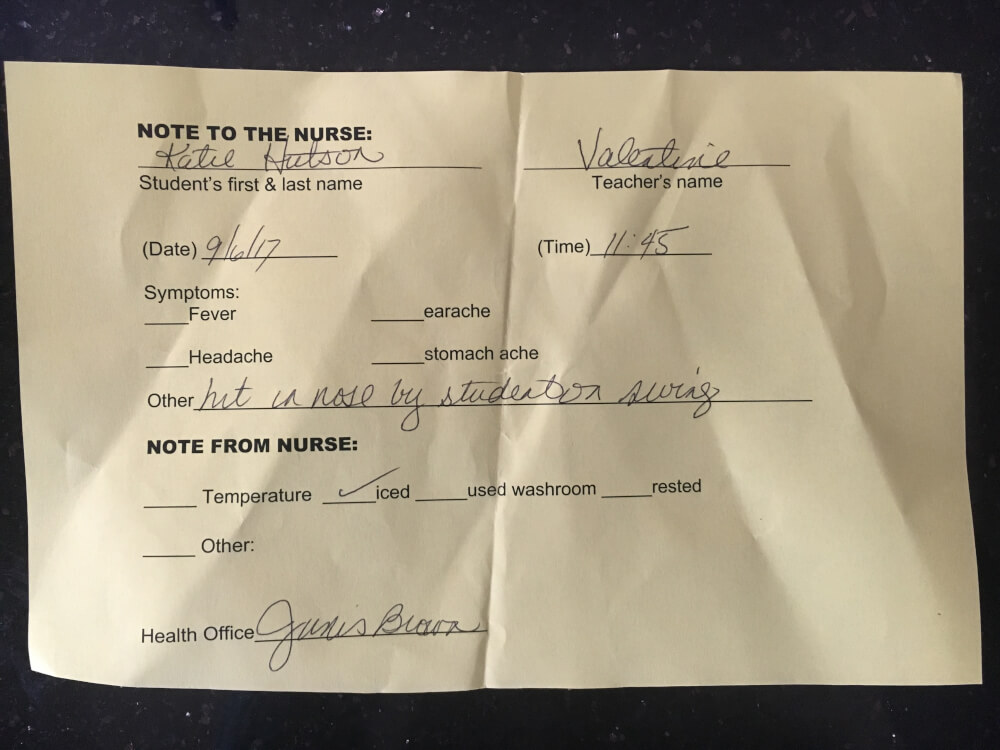 NOTE TO THE NURSE:
Katie Hutson Valentine
Student's first & last name Teacher's name
(Date) 9/6/17 (Time) 11:45
Symptoms:
____Fever ____earache
____Headache ____stomach ache
Other hit in nose by student on swing
NOTE FROM NURSE:
____ Temperature __✓__iced ____used washroom ____rested
____ Other:
Health Office Brown